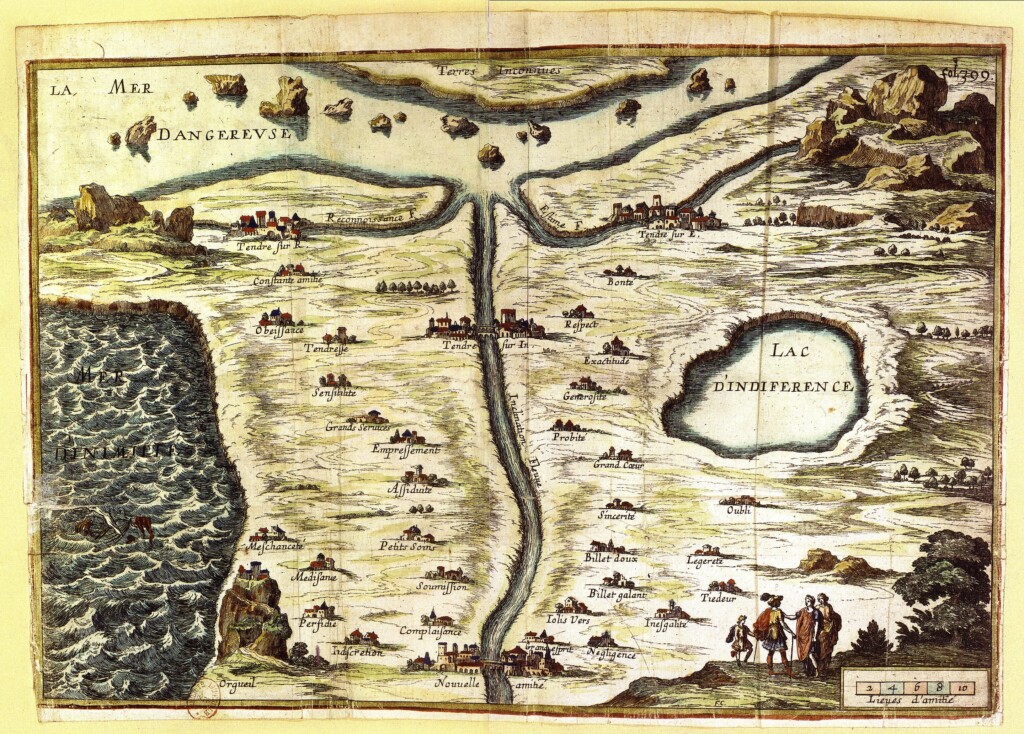 Terres Inconnues
fol. 399.
LA MER
DANGEREVSE
Reconnoissance F.
Estime F.
Tendre sur R.
Tendre sur E.
Constante amitie
Bonté
Obeissance
Respect
Tendresse
Tendre sur In.
Exactitude
LAC
D'INDIFERENCE
MER
Sensibilité
Generosité
Inclination Fleuve
Grands Services
Probité
Empressement
Grand Cœur
Assiduite
Sincerité
Oubli
Meschanceté
Petits Soins
Billet doux
Legereté
Medisance
Soumission
Billet galant
Tiedeur
Perfidie
Complaisance
Iolis Vers
Inesgalité
Indscretion
Grand esprit
Negligence
Orgueil
Nouuelle amitié
2 4 6 8 10
Lieues d'amitié